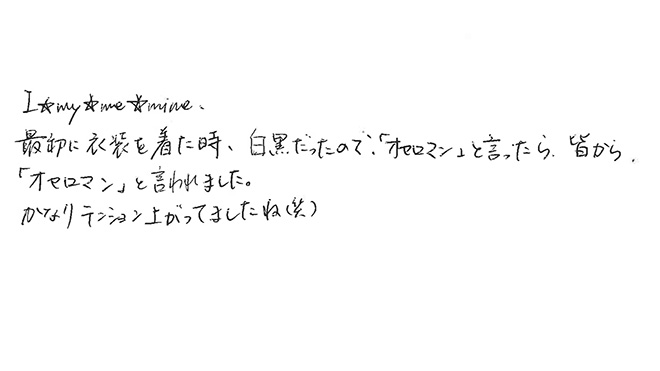 I☆my☆me☆mine、
最初に衣装を着た時、白黒だったので、「オセロマン」と言ったら、皆から、
「オセロマン」と言われました。
かなりテンション上がってましたね(笑)